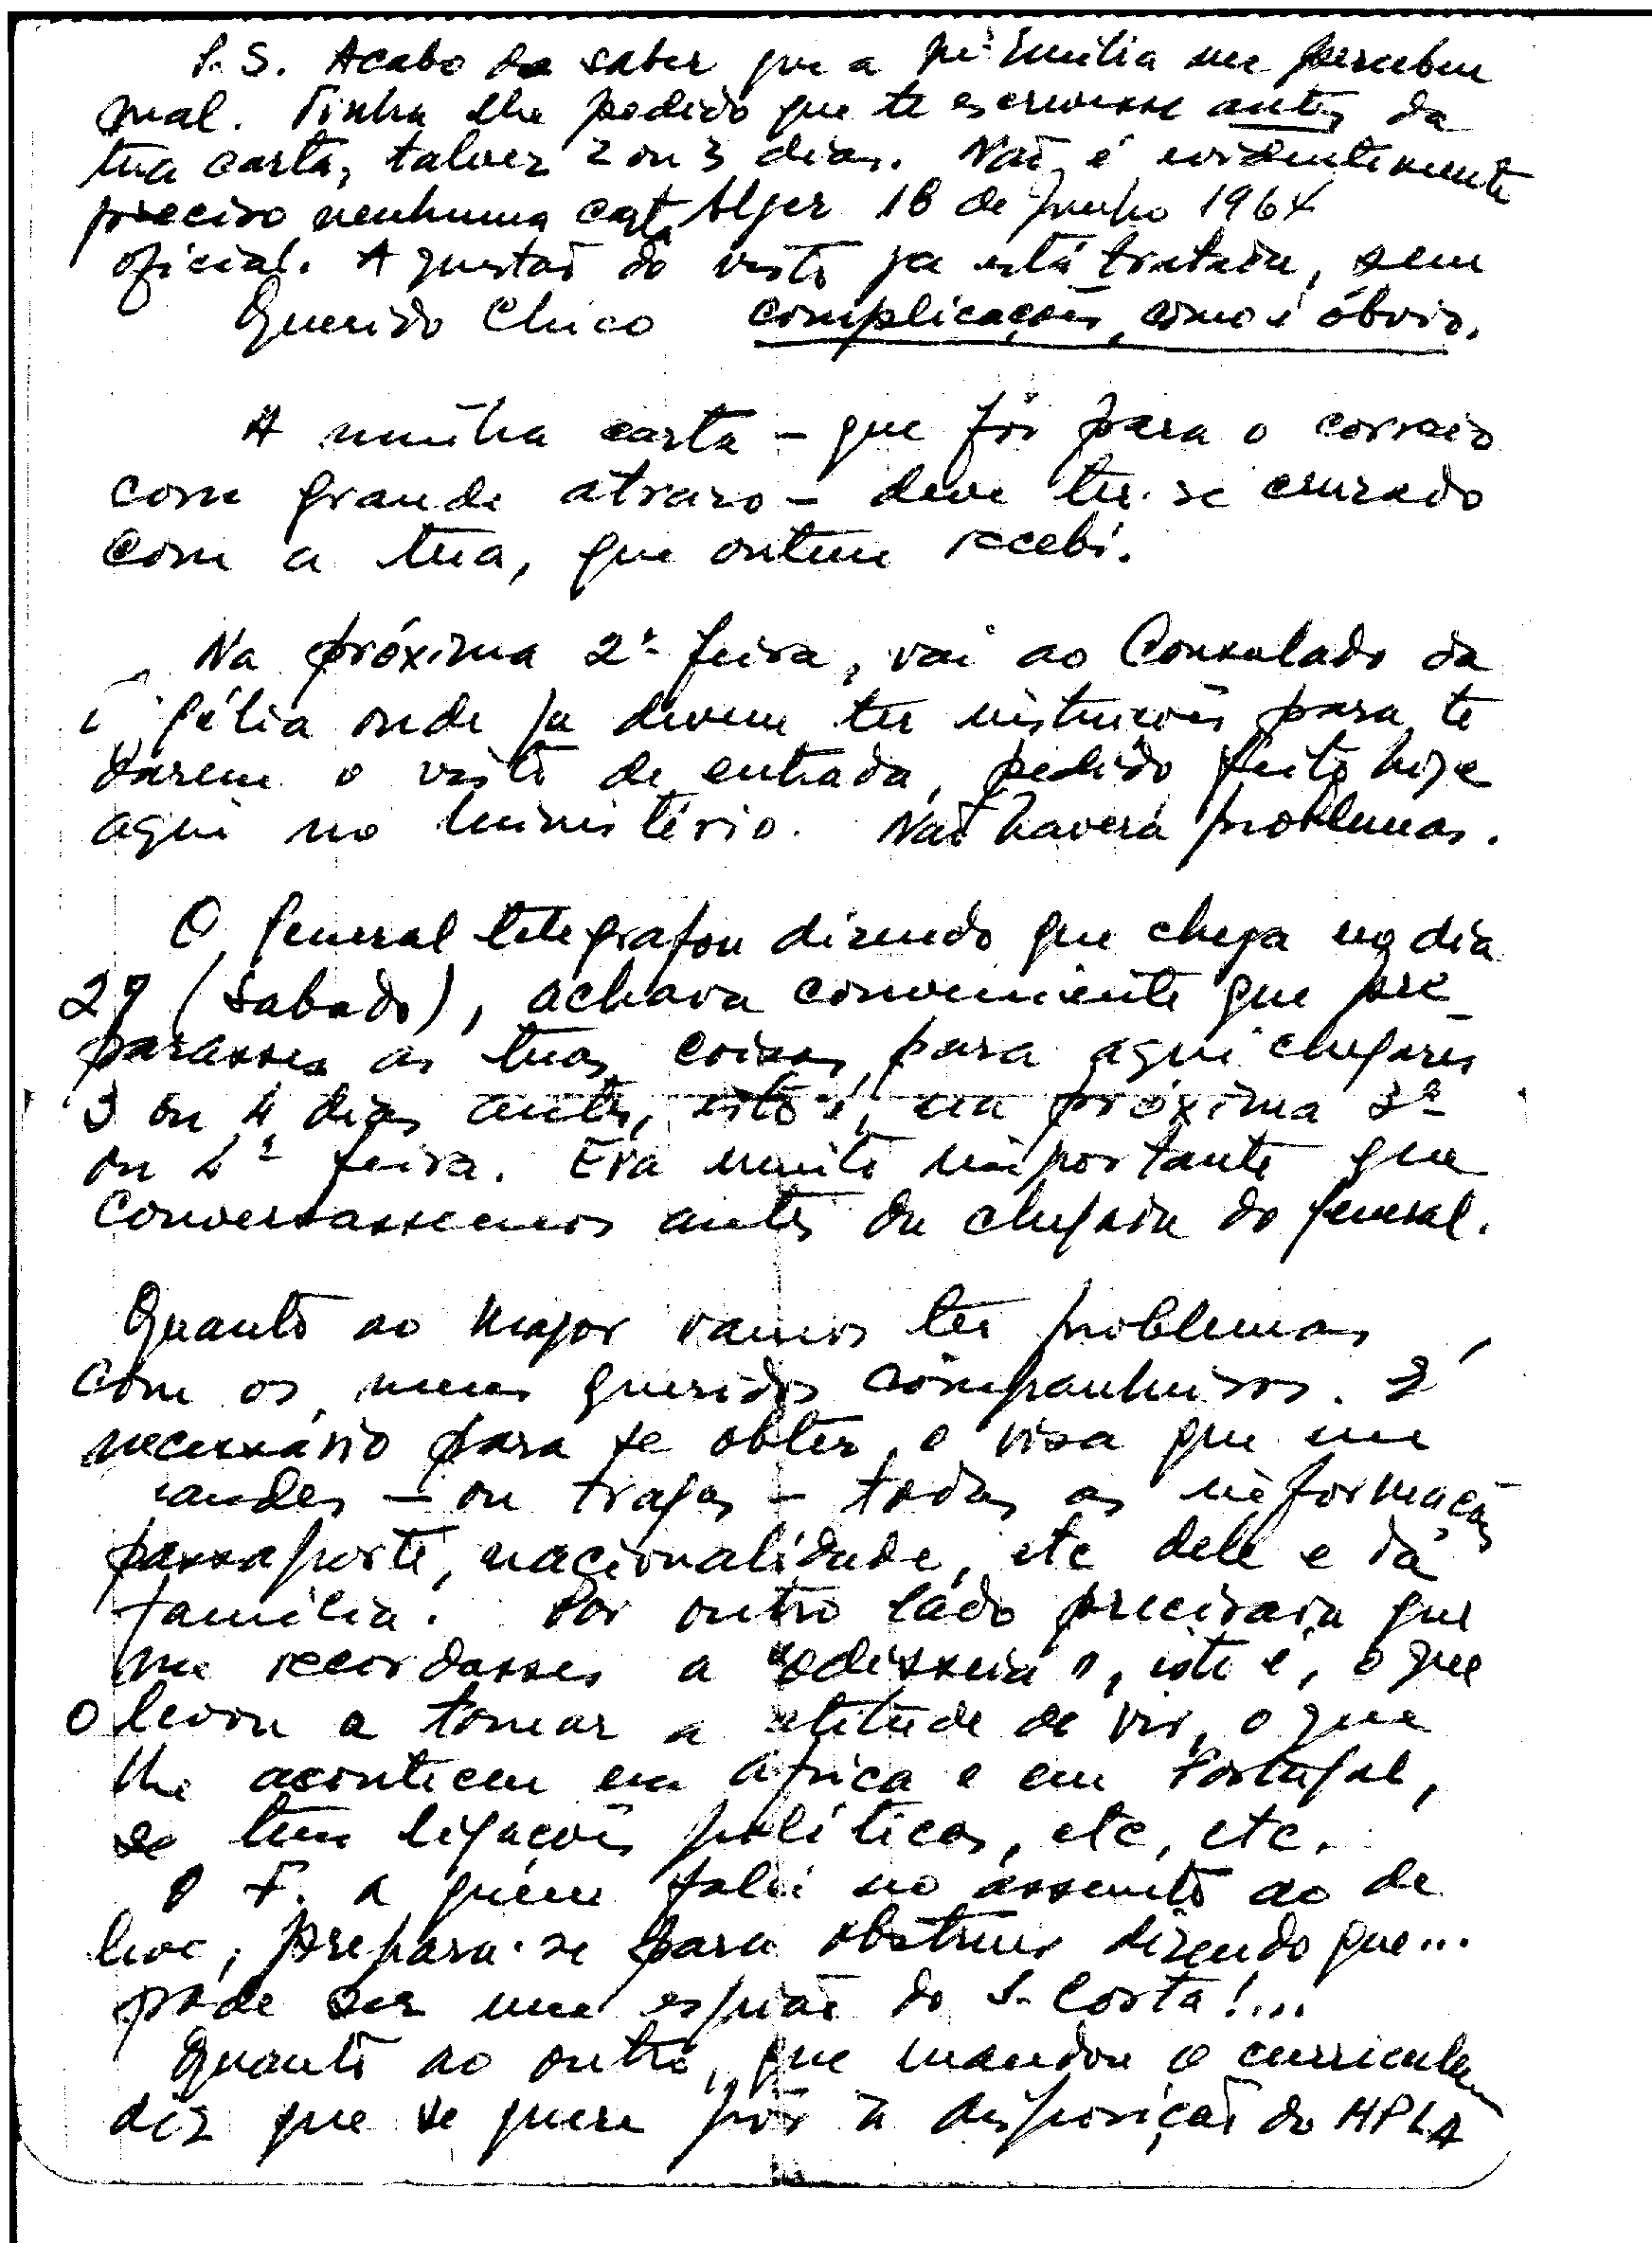 P.S. Acabo de saber que a Mª Emília me percebeu
mal. Tinha lhe pedido que te escrevesse antes da
tua carta, talvez 2 ou 3 dias. Não é evidentemente
preciso nenhuma carta Alger 18 de Junho 1964
oficial. A questão do visto ja está tratada, sem
Querido Chico complicações, como é óbvio.
A minha carta - que foi para o correio
com grande atrazo - deve ter-se cruzado
com a tua, que ontem recebi.
Na próxima 2ª feira, vai ao Consulado da
gélia onde ja devem ter instruções para te
darem o visto de entrada, pedido feito hoje
aqui no Ministério. Não haverá problemas.
O General telegrafou dizendo que chega no dia
27 (Sabado), achava conveniente que pre-
parasses as tuas coisas para aqui chegares
3 ou 4 dias antes, isto é, na próxima 3ª
ou 4ª feira. Era muito importante que
conversassemos antes da chegada do General.
Quanto ao Major vamos ter problemas
com os meus queridos companheiros. É
necessário para se obter o visa que me
mandes - ou tragas - todas as informações
passaporte, nacionalidade, etc dele e da
família. Por outro lado precisava que
me recordasses a "odisseia", isto é, o que
o levou a tomar a atitude de vir, o que
lhe aconteceu em Africa e em Portugal,
se tem ligações políticas, etc, etc.
O F. a quem falei no assunto ao de
leve, prepara-se para obstruir dizendo que...
pode ser um espião do S. Costa!...
Quanto ao outro, que mandou o curriculum
diz que se quere pôr à disposição do MPLA